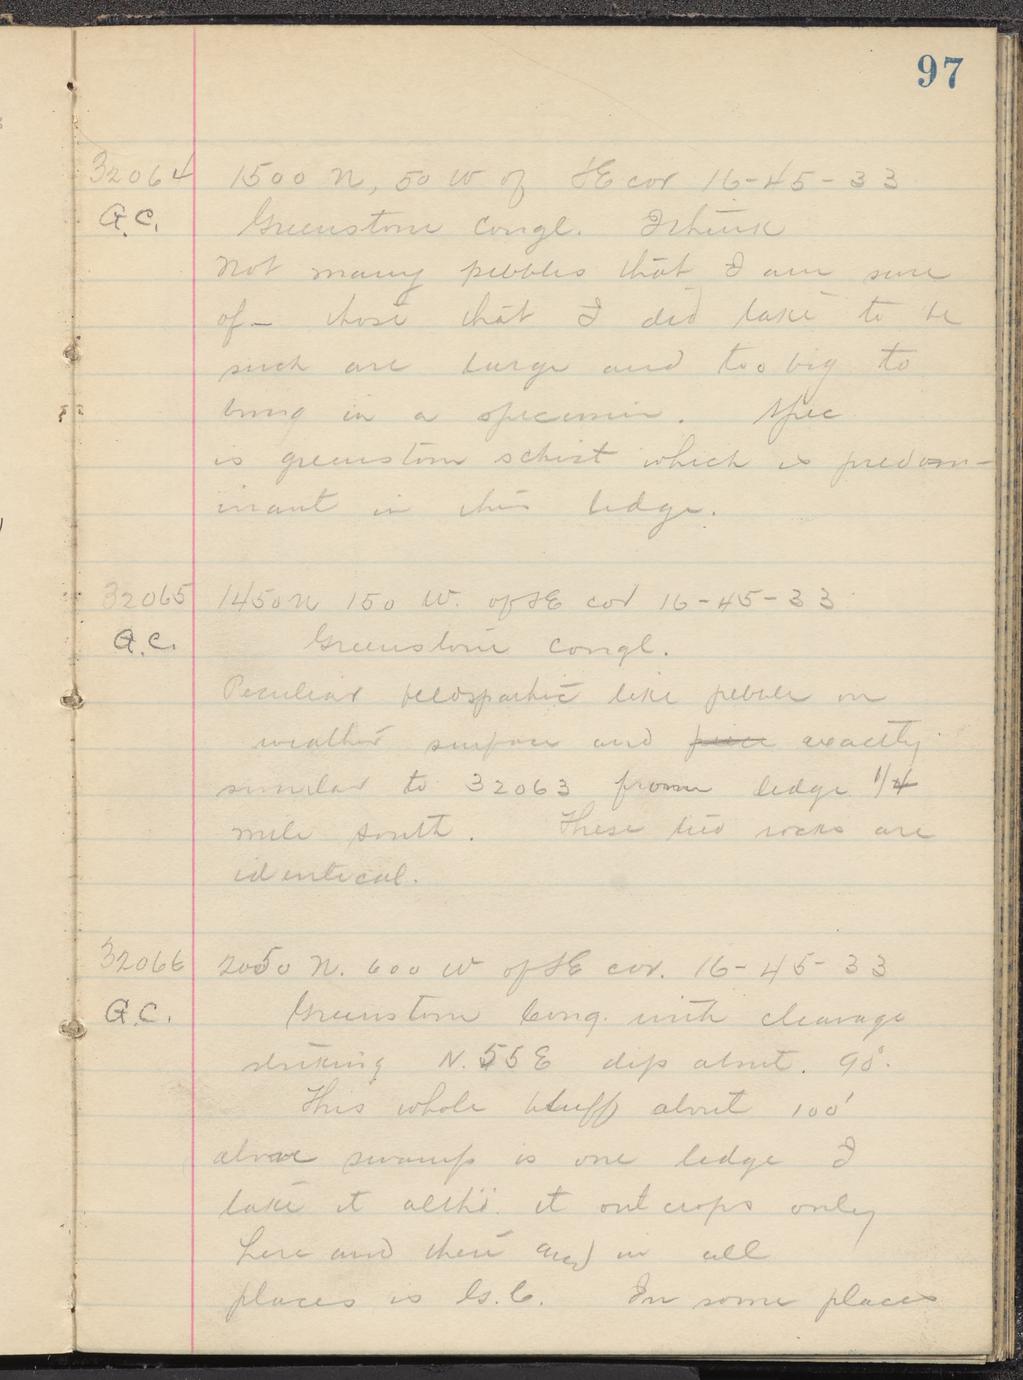 97
32064 1500 N, 50 W of SE cor 16-45-33
G.C. Greenstone Congl. I think
Not many pebbles that I am sure
of - those that I did take to be
such are large and too big to
bring in a specimen. Spec
is greenstone schist which is predom-
inant in this ledge.
32065 1450 N 150 W. of SE cor 16-45-33
G.C. Greenstone Congl.
Peculiar feldspathic like pebble on
weather surface and piece exactly
similar to 32063 from ledge 1/4
mile south. These two rocks are
identical.
32066 2050 N. 600 W of SE cor. 16-45-33
G.C. Greenstone Cong. with cleavage
striking N. 55 E dip about. 90°.
This whole bluff about 100'
above swamp is one ledge I
take it altho. it outcrops only
here and there and in all
places is G.C. In some places